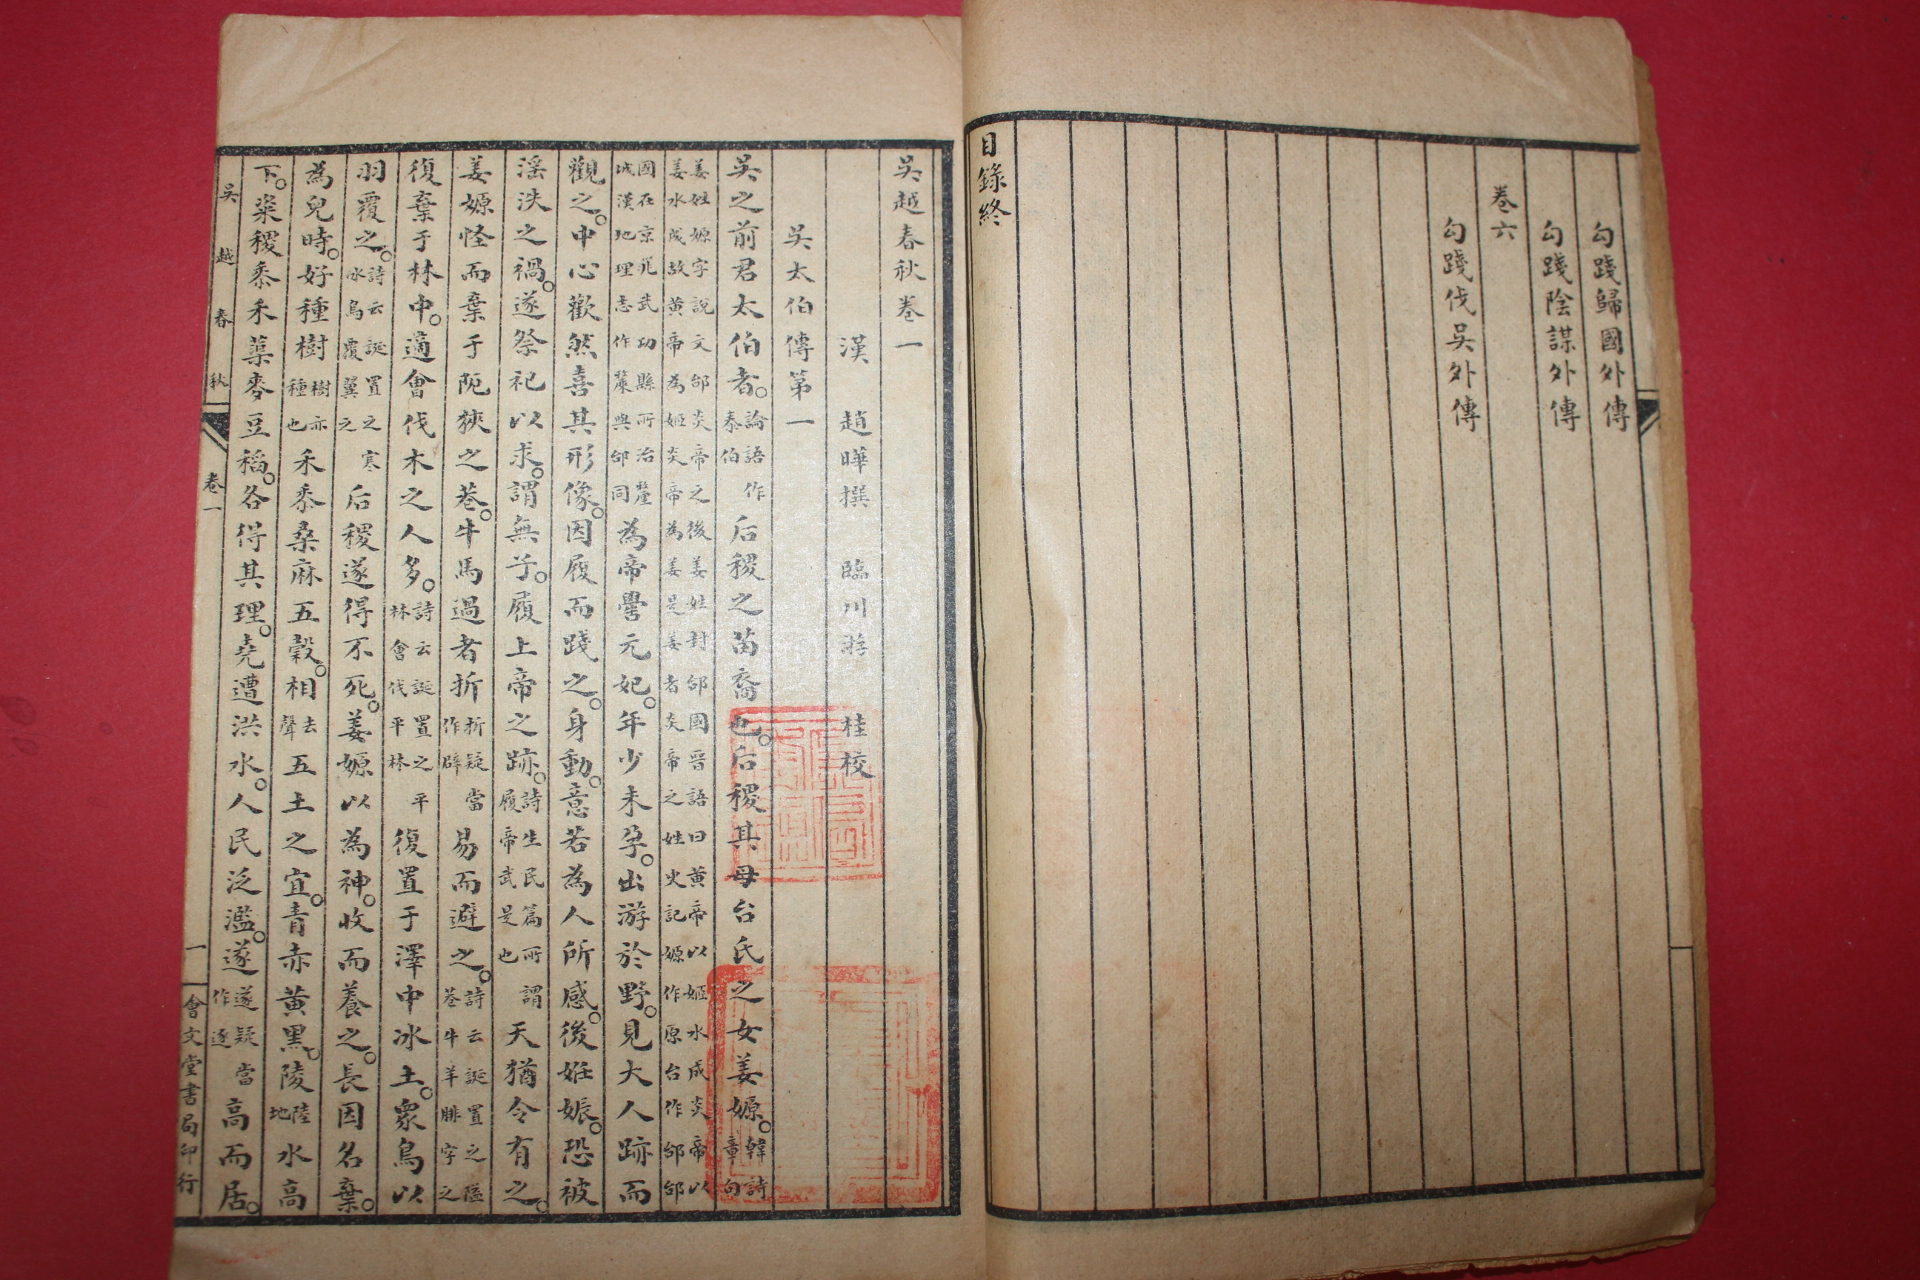 勾踐歸國外傳
勾踐陰謀外傳
卷六
勾踐伐吳外傳
目錄終
吳越春秋卷一
漢 趙曄撰 臨川游 桂校
吳太伯傳第一
吳之前君太伯者。論語作泰伯后稷之苗裔也。后稷其母台氏之女姜嫄。韓詩章句
姜姓嫄字說文邰炎帝之後姜姓封邰國晋語曰黃帝以姬水成炎帝以
姜水成故黃帝為姬炎帝為姜是姜者炎帝之姓史記嫄作原台作邰邰
國在京兆武功縣所治釐城漢地理志作斄與邰同為帝嚳元妃。年少未孕。出游於野。見大人跡而
觀之。中心歡然喜其形像。因履而踐之。身動。意若為人所感。後姙娠。恐被
淫泆之禍。遂祭祀以求。謂無子。履上帝之跡。詩生民篇所謂履帝武是也天猶令有之。
姜嫄怪而棄于阨狹之巷。牛馬過者折折疑當作辟易而避之。詩云誕置之隘巷牛羊腓字之
復棄于林中。適會伐木之人多。詩云誕置之平林會伐平林復置于澤中冰土。眾鳥以
羽覆之。詩云誕置之寒冰鳥覆翼之后稷遂得不死。姜嫄以為神。收而養之。長因名棄。
為兒時。好種樹樹亦種也禾黍桑麻五穀。相去聲五土之宜。青赤黃黑。陵陸地水高
下。粢稷黍禾蕖麥豆稻。各得其理。堯遭洪水。人民泛濫。遂遂疑當作逐高而居。
吳越春秋 卷一 一 會文堂書局印行